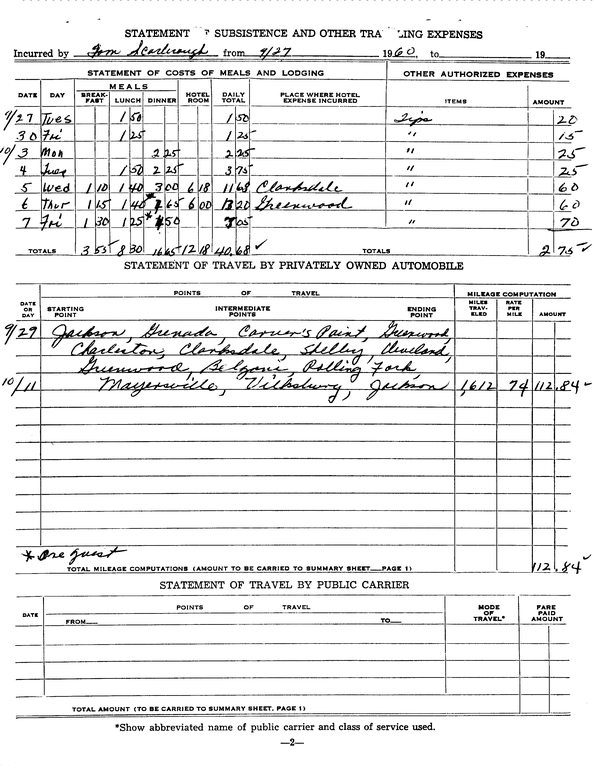 STATEMENT OF SUBSISTENCE AND OTHER TRA LING EXPENSES
Incurred by Tom Scarbrough from 9/27 1960, to 19
STATEMENT OF COSTS OF MEALS AND LODGING OTHER AUTHORIZED EXPENSES
DATE DAY MEALS BREAK-FAST LUNCH DINNER HOTEL ROOM DAILY TOTAL PLACE WHERE HOTEL EXPENSE INCURRED ITEMS AMOUNT
9/27 Tues 1 50 1 50 Tips 20
30 Fri 1 25 1 25 " 15
10/3 Mon 2 25 2 25 " 25
4 Tues 1 50 2 25 3 75 " 25
5 Wed 1 10 1 40 3 00 6 18 11 68 Clarksdale " 60
6 Thur 1 15 1 40 * 65 6 00 20 Greenwood " 60
7 Fri 1 30 1 25 * 50 05 " 70
TOTALS 3 55 8 30 16 65 12 18 40.68 ✓ TOTALS 2 75 ✓
STATEMENT OF TRAVEL BY PRIVATELY OWNED AUTOMOBILE
DATE OR DAY POINTS OF TRAVEL MILEAGE COMPUTATION
STARTING POINT INTERMEDIATE POINTS ENDING POINT MILES TRAV-ELED RATE PER MILE AMOUNT
9/29 Jackson, Grenada, Carver's Point, Greenwood,
Charleston, Clarksdale, Shelby, Cleveland,
Greenwood, Belzoni, Rolling Fork
10/11 Mayersville, Vicksburg, Jackson 1,612 7¢ 112.84 ✓
* One guest
TOTAL MILEAGE COMPUTATIONS (AMOUNT TO BE CARRIED TO SUMMARY SHEET—PAGE 1) 112.84 ✓
STATEMENT OF TRAVEL BY PUBLIC CARRIER
DATE POINTS OF TRAVEL MODE OF TRAVEL* FARE PAID AMOUNT
FROM— TO—
TOTAL AMOUNT (TO BE CARRIED TO SUMMARY SHEET. PAGE 1)
*Show abbreviated name of public carrier and class of service used.
—2—